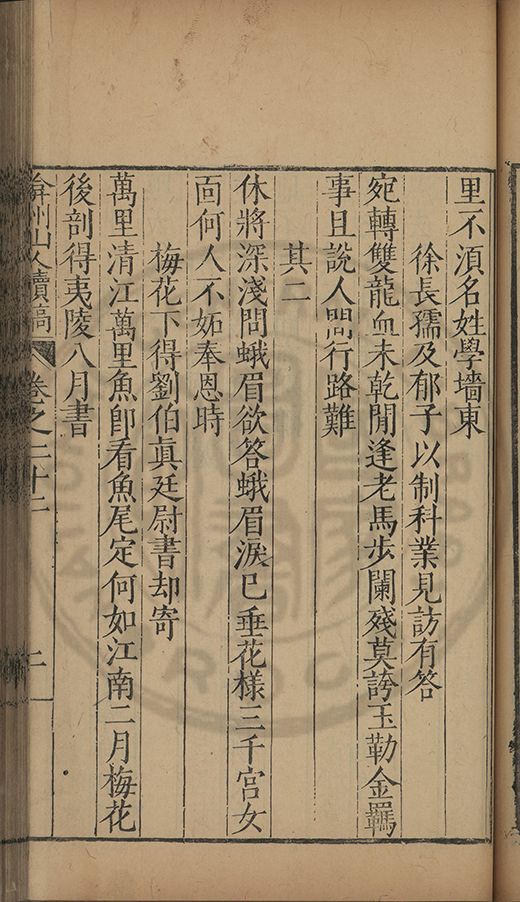 里不湏名姓學墻東
徐長孺及郁子以制科業見訪有答
宛轉雙龍血未乾閒逢老馬步闌殘莫誇玉勒金羈
事且說人間行路難
其二
休將深淺問蛾眉欲答蛾眉淚巳垂花樣三千宮女
面何人不妬奉恩時
梅花下得劉伯真廷尉書却寄
萬里清江萬里魚卽看魚尾定何如江南二月梅花
後剖得夷陵八月書
弇州山人續稿 卷之二十二 二